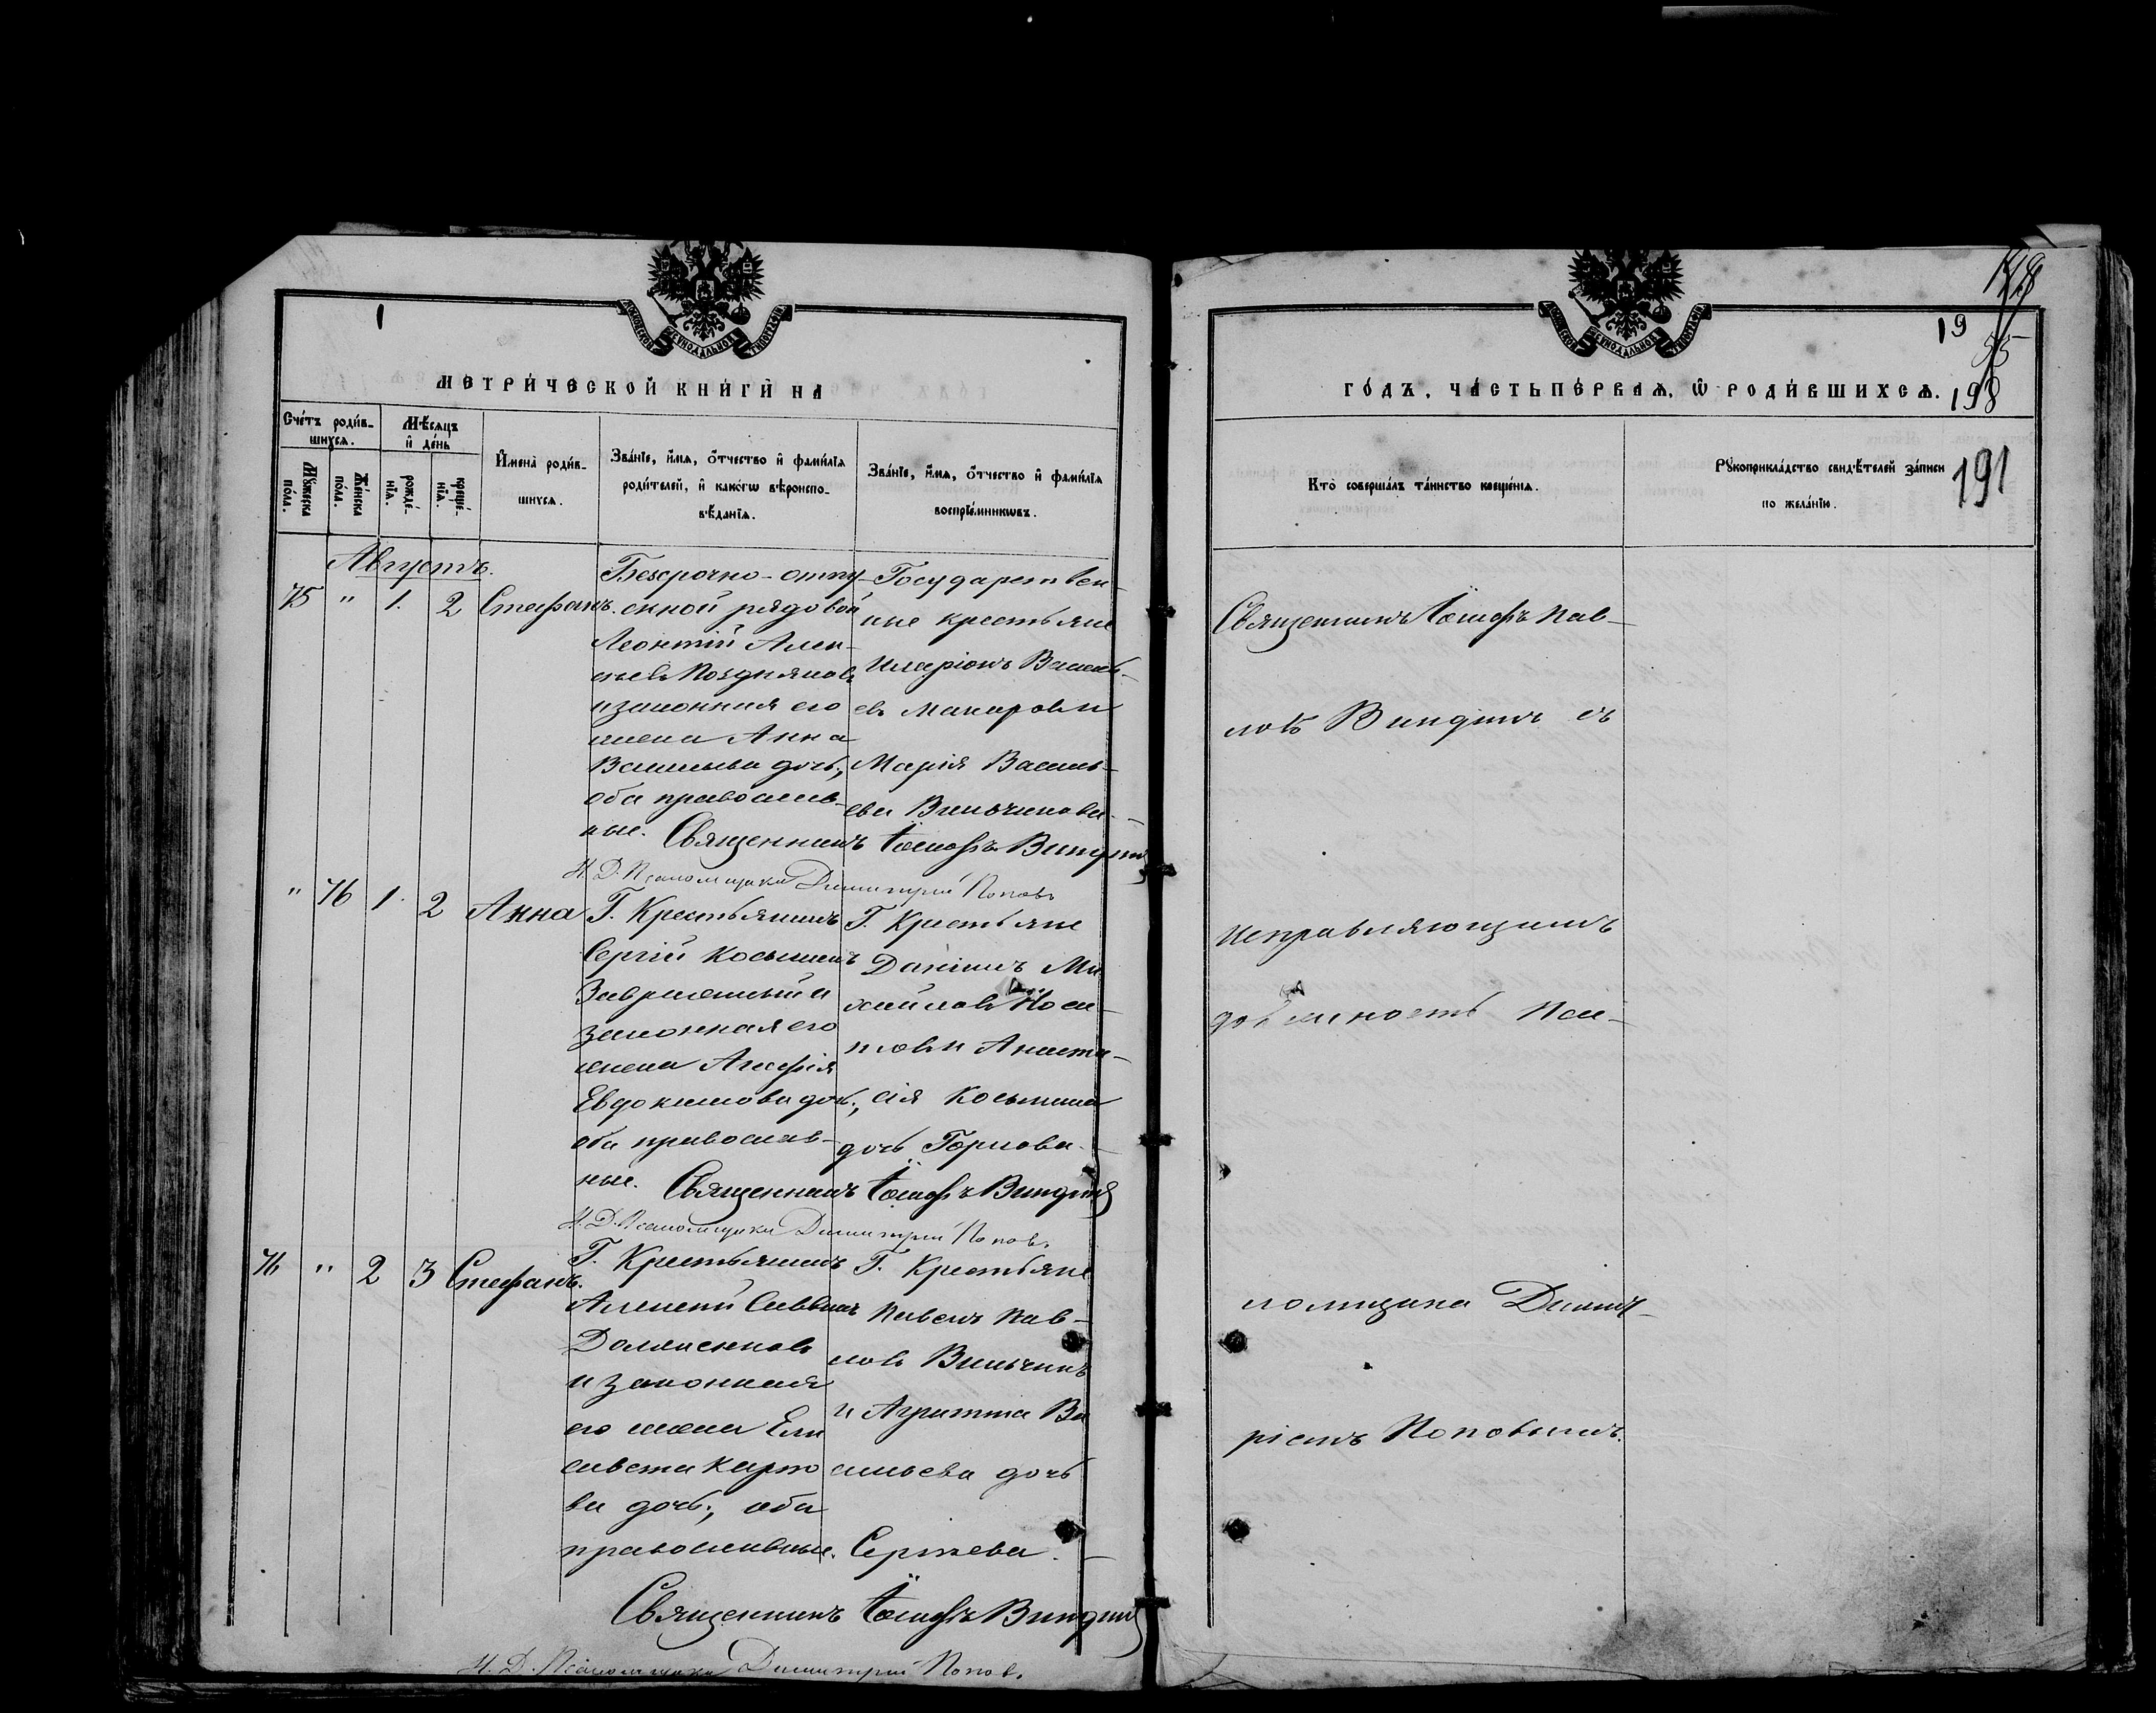 1
МЕТРИ́ЧЕСКОЙ КНИ́ГИ НА
Сче́тъ роди́в-
шихсѧ.
Мѣ́сѧцъ
и҆ де́нь
Мꙋ́жеска
по́ла.
Же́нска
по́ла.
рожде́-
нїѧ.
креще́-
нїѧ.
И҆мена̀ роди́в-
шихсѧ.
Зва́нїе, и҆́мѧ, ѻ҆́тчество и҆ фами́лїѧ
роди́телей, и҆ како́гѡ вѣроиспо-
вѣ́данїѧ.
Зва́нїе, и҆́мѧ, ѻ҆́тчество и҆ фами́лїѧ
воспрїе́мникѡвъ.
Августъ.
75 " 1. 2 Стефанъ.
Безсрочно-отпу-
скной рядовой
Леонтій Алек-
сѣевъ Поздняковъ
и законная его
жена Анна
Васильева дочь,
оба православ-
ные.
Государствен-
ные крестьяне
Иларіонъ Василь-
евъ Макаровъ и
Марія Василь-
ева Вильчикова.
Священникъ Іосифъ Виндинъ
И. Д. Псаломщика Димитрій Поповъ
" 76 1. 2 Анна
Г. Крестьянинъ
Сергій Косьминъ
законная его
жена
Евдокимова дочь,
оба православ-
ные.
Г. Крестьяне
Даніилъ Ми
хайловъ
и Анаста-
сія Косьмина
дочь Горлова.
Священникъ Іосифъ Виндинъ
И. Д. Псаломщика Димитрій Поповъ.
76 " 2 3 Стефанъ.
Г. Крестьянинъ
Алексѣй Саввинъ
Долженковъ
и законная
его жена Ели
савета Карпо
ва дочь, оба
православные.
Г. Крестьяне
Павелъ Пав-
ловъ Вильчикъ
и Агриппа Ва
сильева дочь
Сергѣева.
Священникъ Іосифъ Виндинъ
И. Д. Псаломщика Димитрій Поповъ.
19
55
198
191
ГО́ДЪ, ЧА́СТЬ ПЕ́РВАѦ, Ѽ РОДИ́ВШИХСѦ.
Кто̀ соверша́лъ та́инство креще́нїѧ.
Рꙋкоприкла́дство свидѣ́телей за́писи
по жела́нїю.
Священникъ Іосифъ Пав-
ловъ Виндинъ съ
исправляющимъ
должность Пса-
ломщика Димит-
ріемъ Поповымъ.